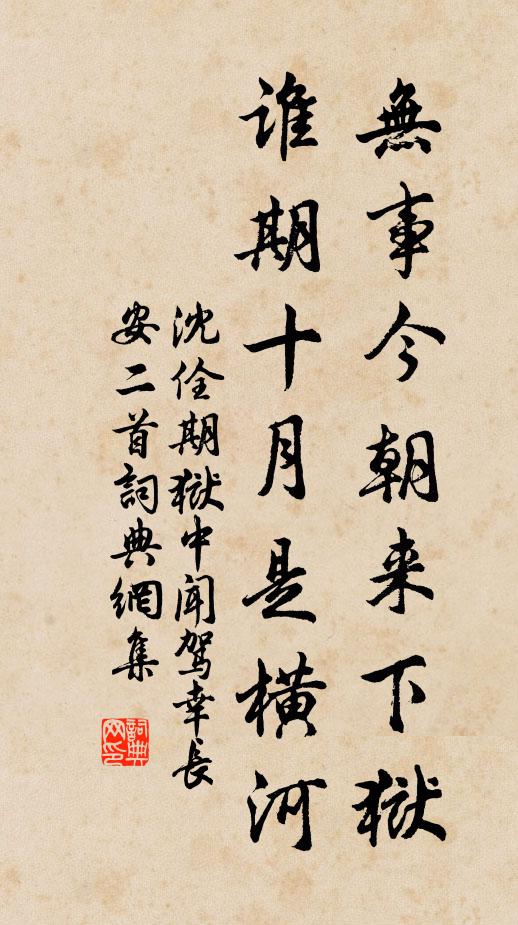 無事今朝来下獄
谁期十月是横河
沈佺期獄中闻駕幸長
安二首詞典網集
詞典网印